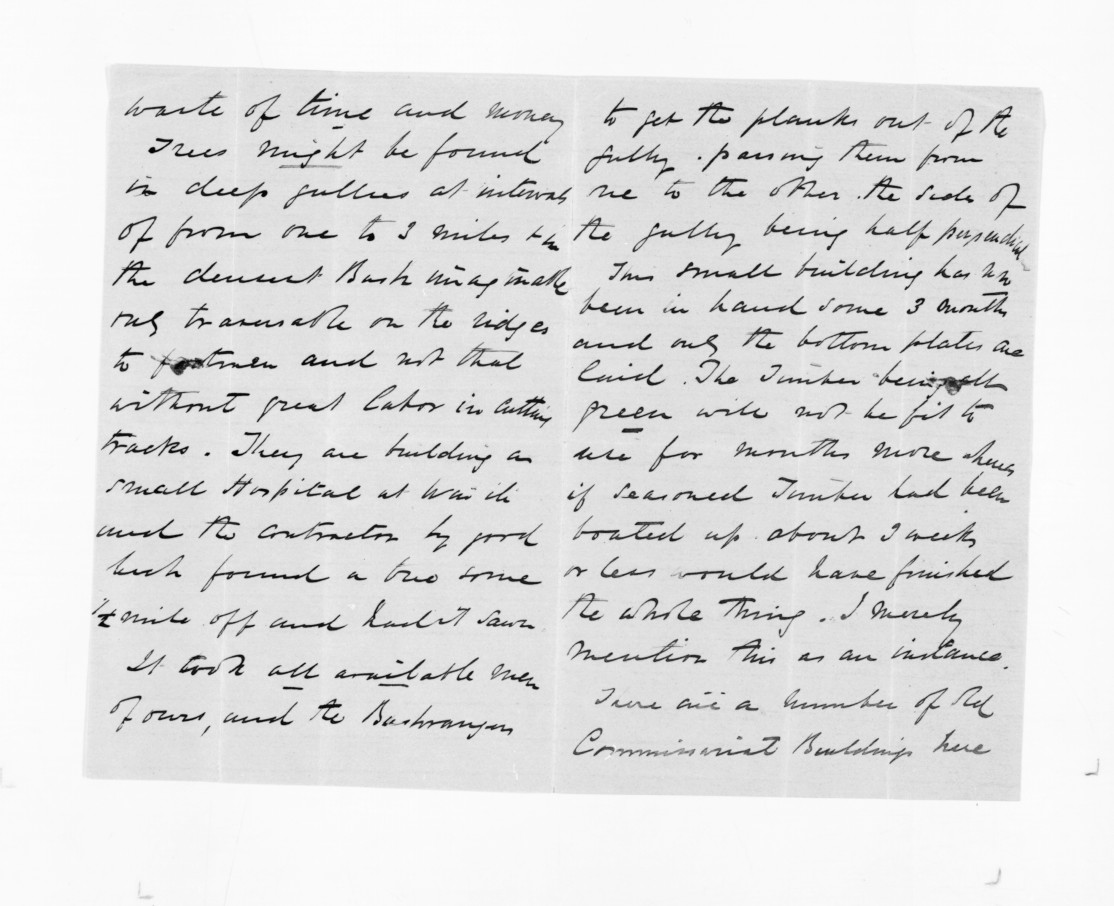 waste of time and money
Trees might be found
in deep gullies at intervals
of from one to 3 miles & in
the densest Bush imaginable
only traversable on the ridges
to footmen and not that
without great labor in cutting
tracks. They are building a
small Hospital at
and the contractor by good
luck found a tree some
½ mile off and had it sawn
It took all available men
of ours, and the Bushrangers
to get the planks out of the
gully. passing them from
one to the other. the sides of
the gully being half perpendicular
This small building has now
been in hand some 3 months
and only the bottom plates are
laid. The Timber being all
green will not be fit to
use for months more whereas
if seasoned Timber had been
boated up about 3 weeks
or less would have finished
the whole thing. I merely
mention this as an instance.
There are a number of old
Commissariat Buildings here